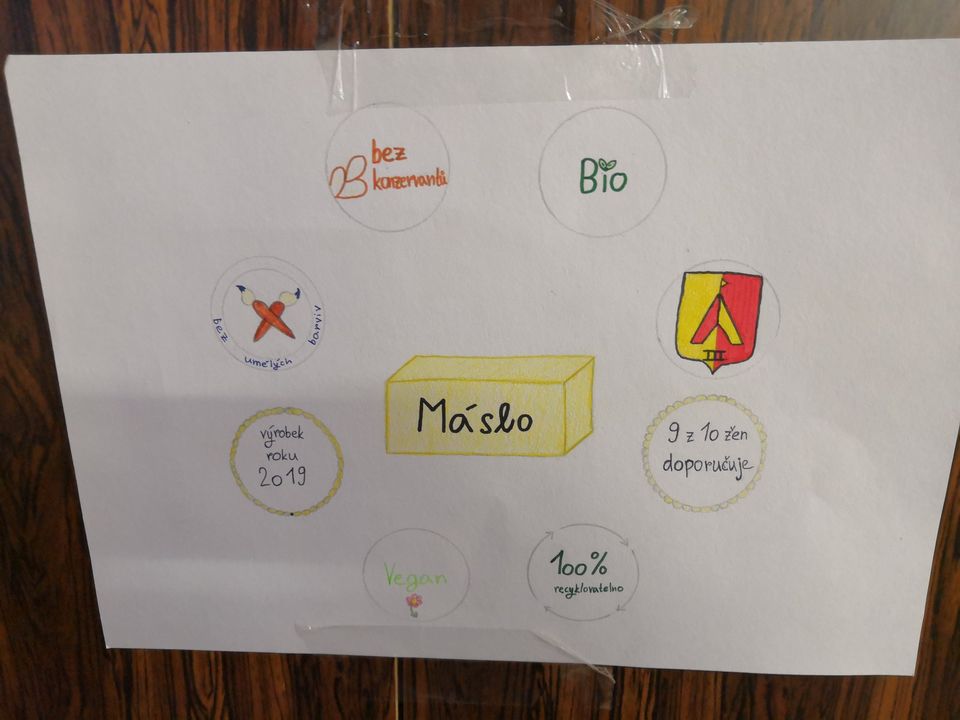 bez
konzervantů
Bio
bez umělých barviv
III
Máslo
výrobek
roku
2019
9 z 10 žen
doporučuje
Vegan
100%
recyklovatelno